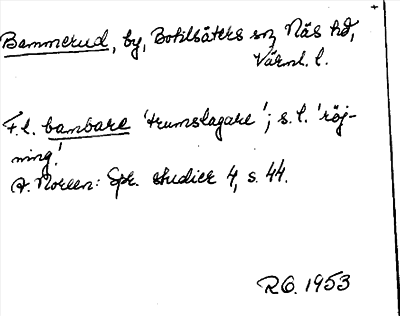 Bammerud, by, Botilsäters sn, Näs hd,
Värml. l.
F.l. bambare 'trumslagare'; s.l. 'röj-
ning'.
A. Noreen: Spr. studier 4, s. 44.
R.O. 1953